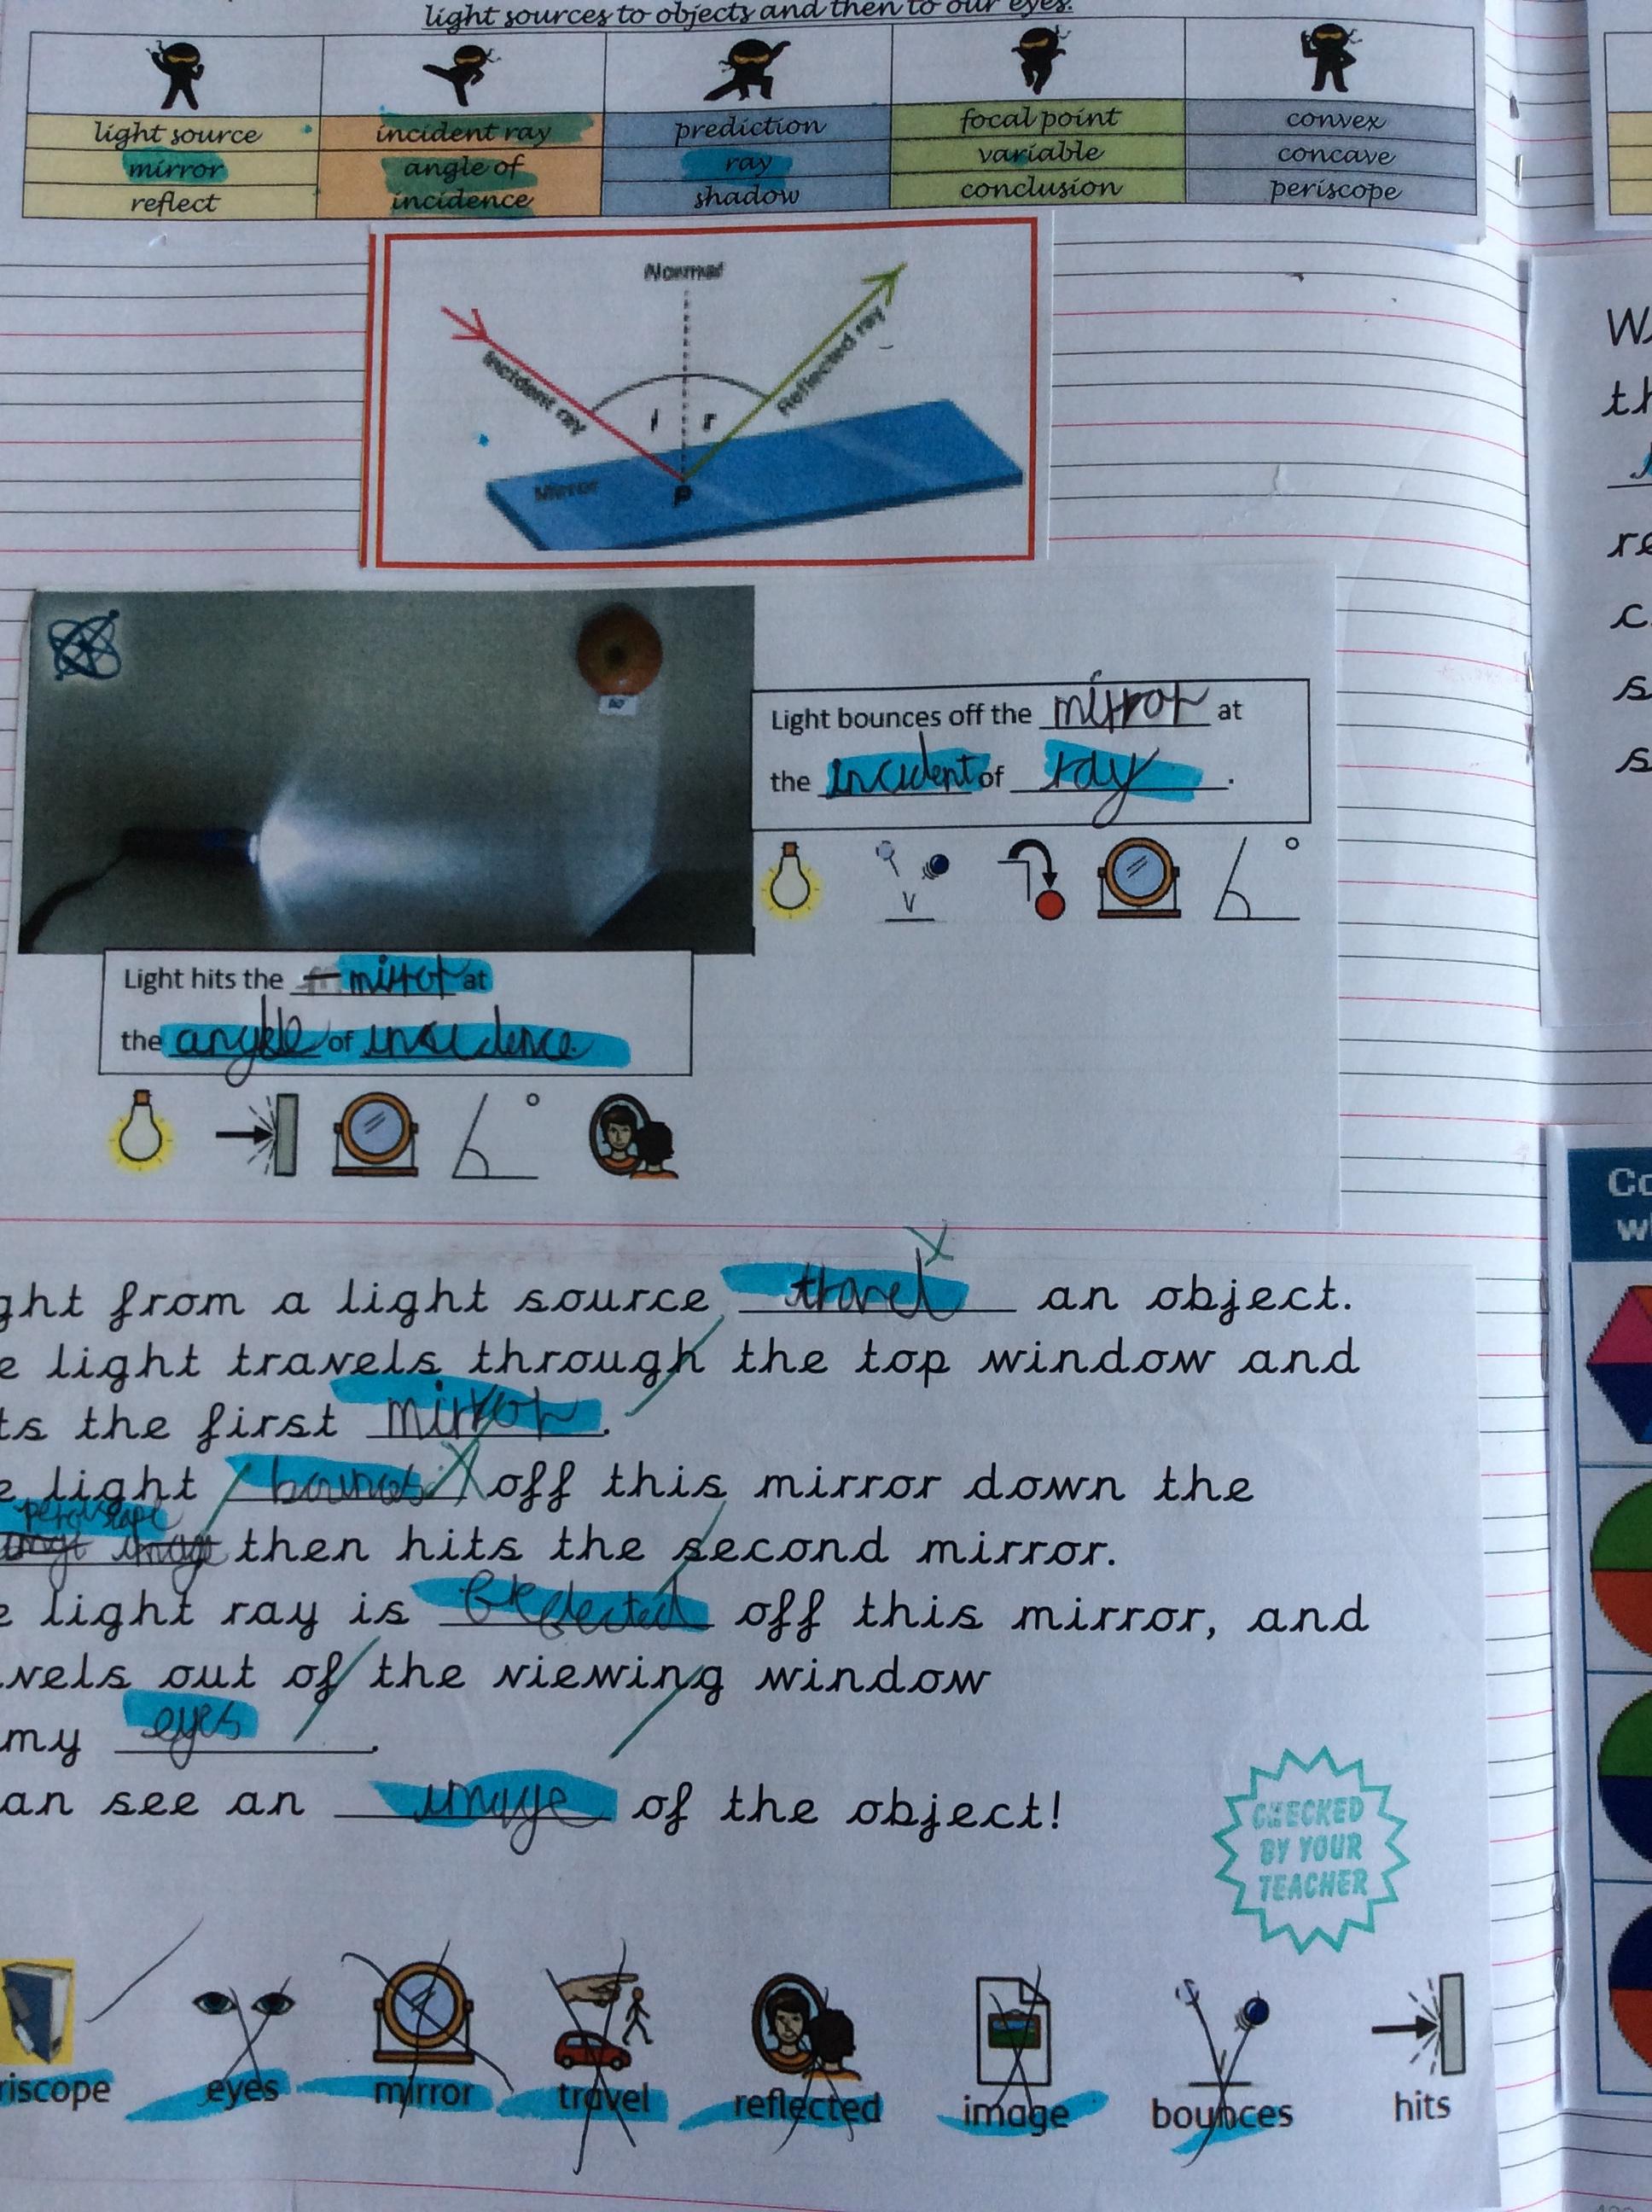 light sources to objects and then to our eyes.
light source incident ray prediction focal point convex
mirror angle of ray variable concave
reflect incidence shadow conclusion periscope
Normal
Incident ray
Reflected ray
i r
Mirror
P
Light bounces off the mirror at
the incident of ray.
Light hits the mirror at
the angle of incidence
ght from a light source travel an object.
e light travels through the top window and
ts the first mirror.
e light bounces off this mirror down the
periscope
then hits the second mirror.
e light ray is reflected off this mirror, and
vels out of the viewing window
my eyes.
an see an image of the object!
CHECKED
BY YOUR
TEACHER
riscope eyes mirror travel reflected image bounces hits
W
th
re
c
s
s
Co
w